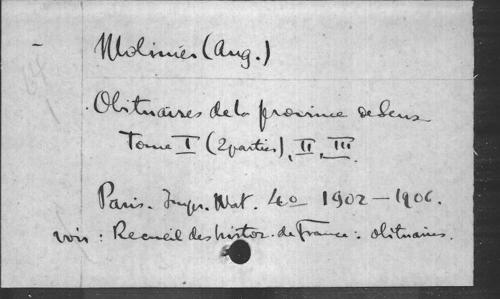 Molinier (Aug.)
Obituaires de la province de Sens
Tome I (2 parties), II, III.
Paris. Impr. Nat. 4o 1902-1906.
voir : Recueil des histor. de France : obituaires.